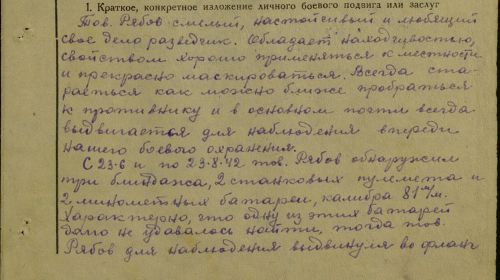 1. Краткое, конкретное изложение личного боевого подвига или заслуг
Тов. Рябов смелый, настойчивый и любящий
свое дело разведчик. Обладает находчивостью,
свойством хорошо применяться к местности
и прекрасно маскироваться. Всегда ста-
рается как можно ближе пробраться
к противнику и в основном почти всегда
выдвигается для наблюдения впереди
нашего боевого охранения.
С 23-6 и по 23-8-42 тов. Рябов обнаружил
три блиндажа, 2 станковых пулемета и
2 минометных батареи, калибра 81 м/м.
Характерно, что одну из этих батарей
долго не удавалось найти, тогда тов.
Рябов для наблюдения выдвинулся во фланг